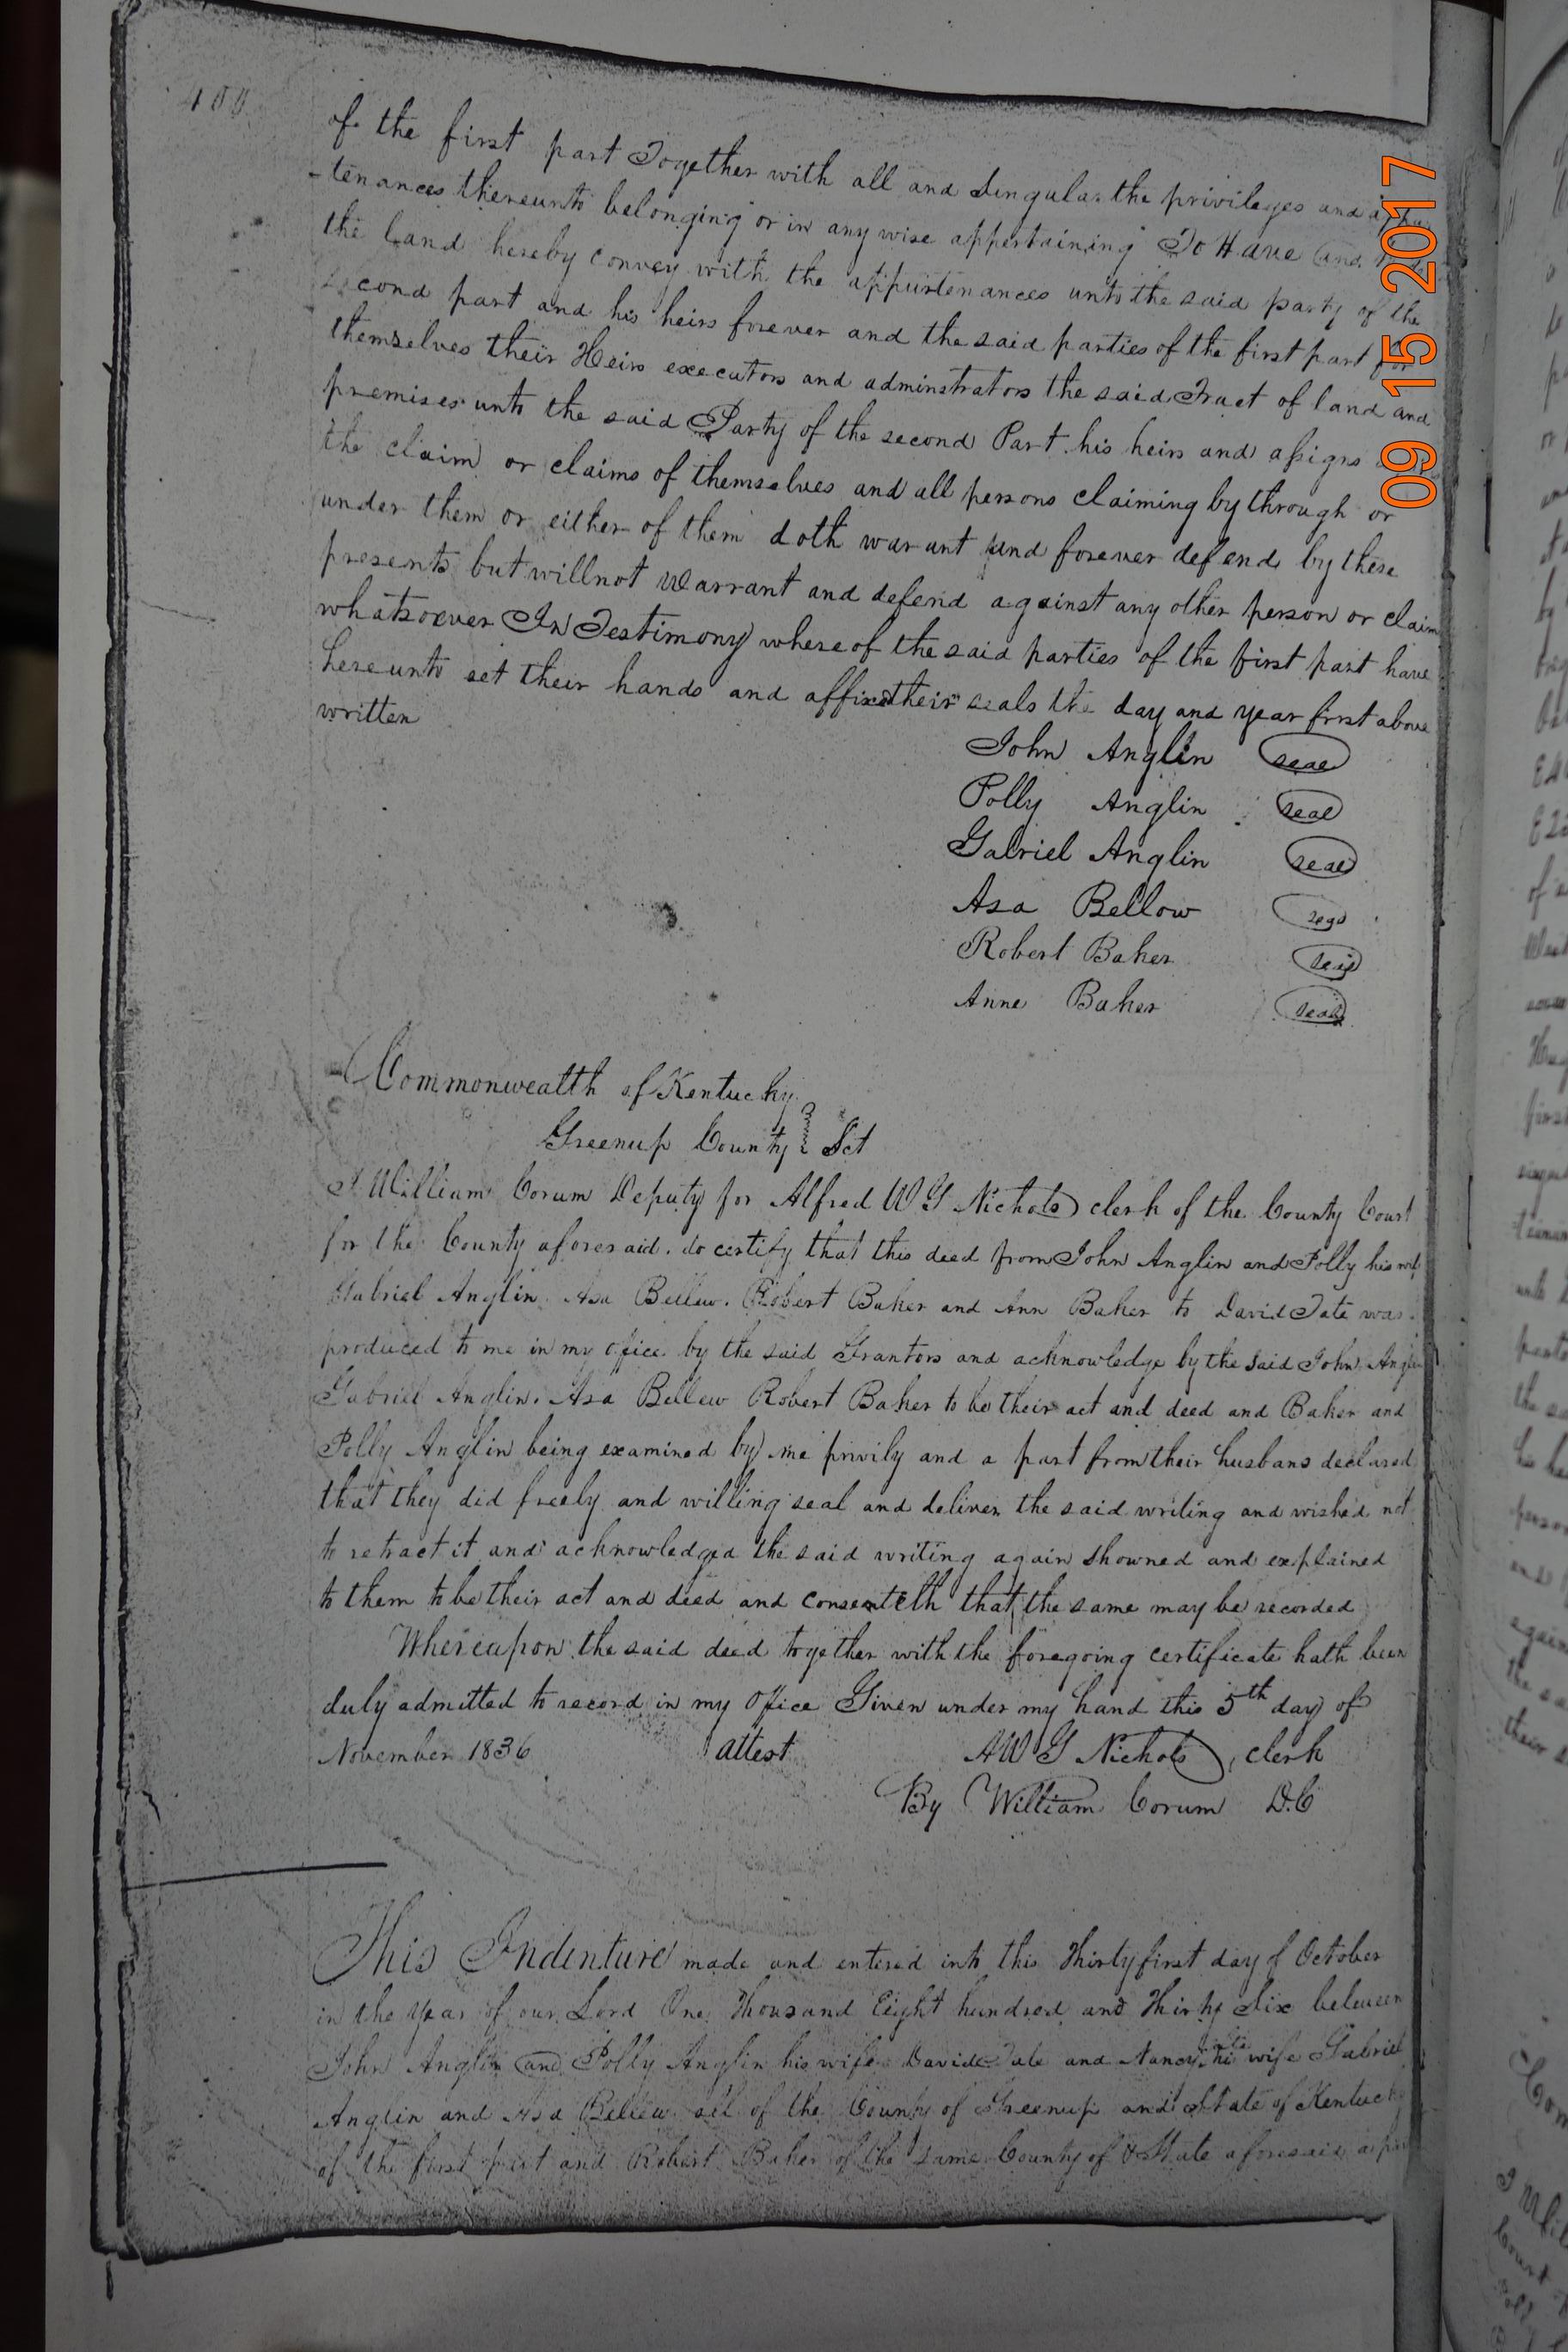 400
of the first part Together with all and Singular the privileges and appur
-tenances thereunto belonging or in any wise appertaining To Have and
the land hereby convey with the appurtenances unto the said party of the
second part and his heirs forever and the said parties of the first part for
themselves their Heirs executors and adminstrators the said Tract of land and
premises unto the said Party of the second Part his heirs and assigns
the claim or claims of themselves and all persons claiming by through or
under them or either of them doth warant and forever defend by these
presents but will not Warrant and defend against any other person or claim
whatsoever In Testimony whereof the said parties of the first part have
hereunto set their hands and affixed their seals the day and year first above
written
John Anglin seal
Polly Anglin seal
Gabriel Anglin seal
Asa Bellow seal
Robert Baker seal
Anne Baker seal
Commonwealth of Kentucky
Greenup County Sct
I William Corum Deputy for Alfred W G Nichols clerk of the County Court
for the County aforesaid. do certify that this deed from John Anglin and Polly his wife
Gabriel Anglin. Asa Bellew. Robert Baker and Ann Baker to David Tate was
produced to me in my office by the said Grantors and acknowledge by the said John Anglin
Gabriel Anglin. Asa Bellew Robert Baker to be their act and deed and Baker and
Polly Anglin being examined by me privily and a part from their husbans declared
that they did freely and willing seal and deliver the said writing and wished not
to retract it and acknowledged the said writing again showned and explained
to them to be their act and deed and consenteth that the same may be recorded
Whereupon the said deed together with the foregoing certificate hath been
duly admitted to record in my office Given under my hand this 5th day of
November 1836 attest A W G Nichols, clerk
By William Corum D.C
This Indenture made and entered into this Thirty first day of October
in the year of our Lord One Thousand Eight hundred and Thirty Six between
John Anglin and Polly Anglin his wife David Tate and Nancy his wife Gabriel
Anglin and Asa Bellew all of the County of Greenup and State of Kentucky
of the first part and Robert Baker of the same County of & State aforesaid
09 15 2017